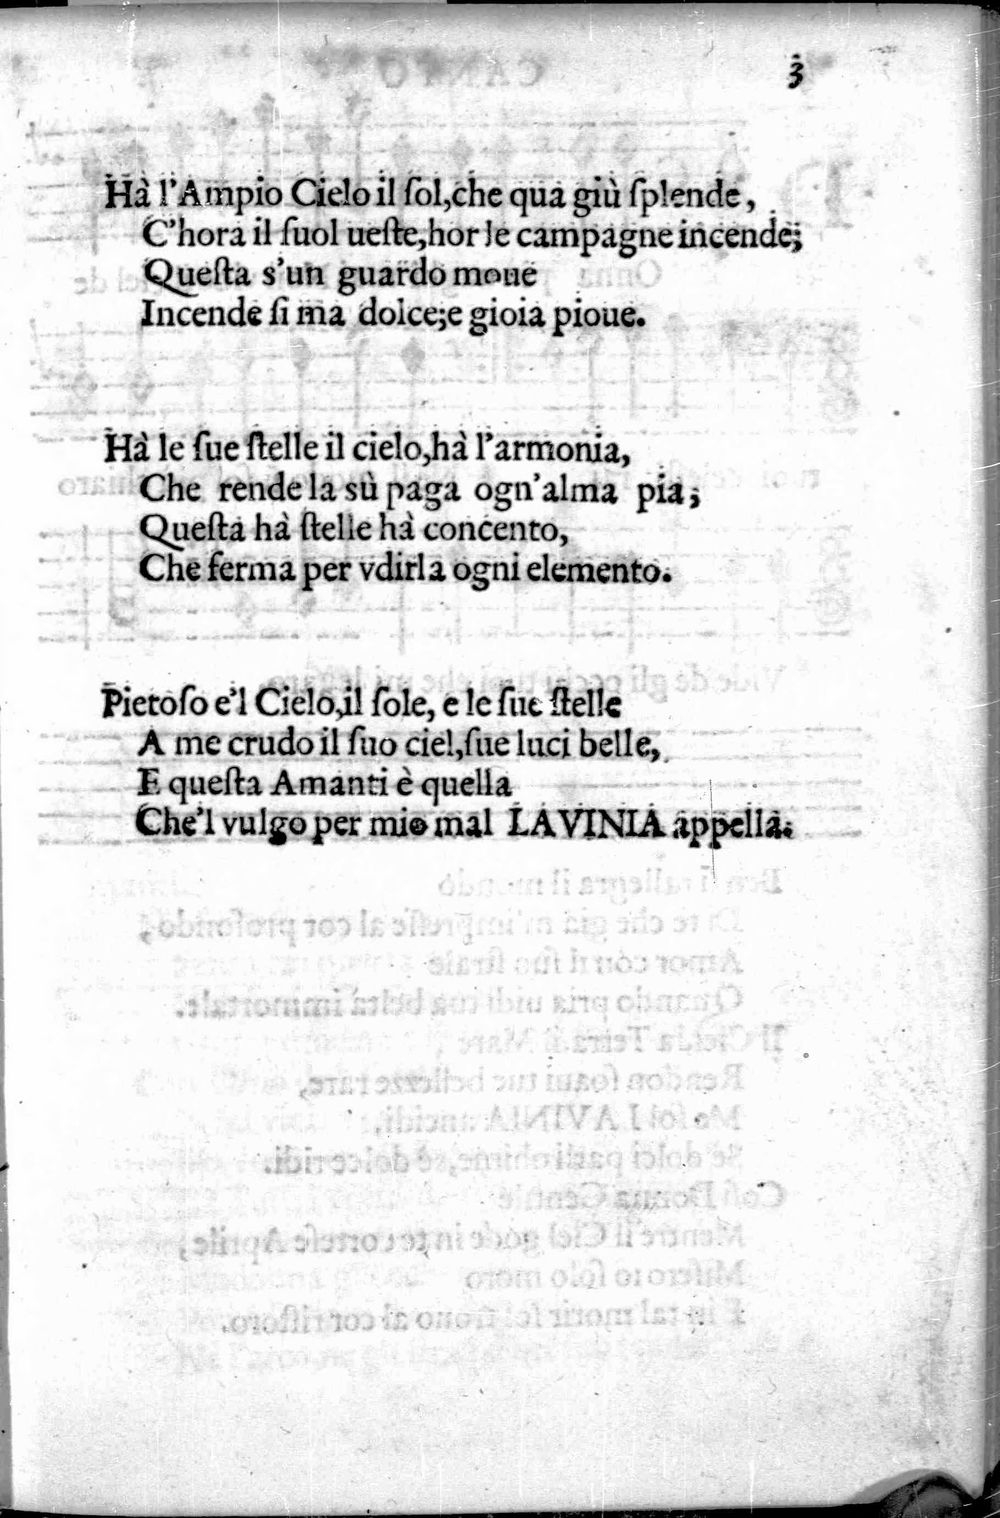 3
Hà l'Ampio Cielo il ſol,che qua giù ſplende,
C'hora il ſuol ueſte,hor le campagne incende;
Queſta s'un guardo moue
Incende ſi ma dolce;e gioia pioue.
Hà le ſue ſtelle il cielo,hà l'armonia,
Che rende la sù paga ogn'alma pia;
Queſta hà ſtelle hà concento,
Che ferma per vdirla ogni elemento.
Pietoſo e'l Cielo,il ſole, e le ſue ſtelle
A me crudo il ſuo ciel,ſue luci belle,
E queſta Amanti è quella
Che'l vulgo per mio mal LAVINIA appella.